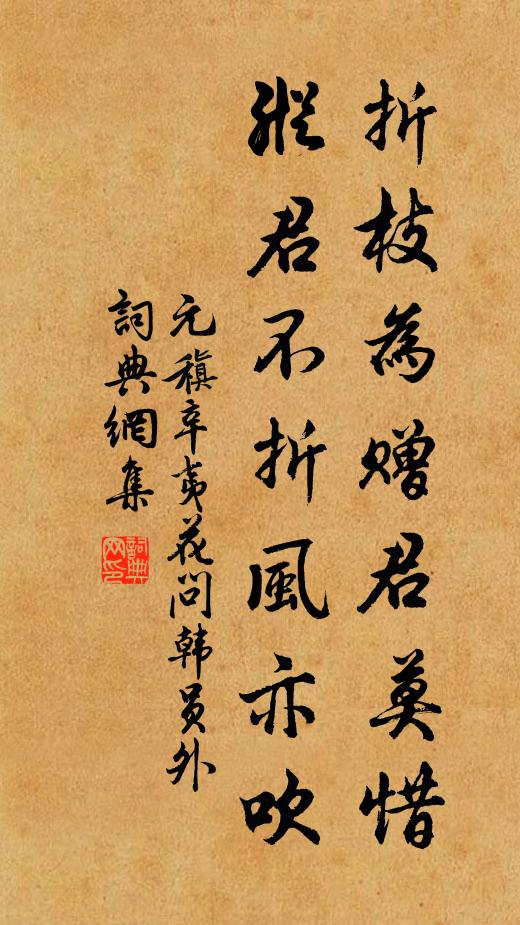 折枝為贈君莫惜
縱君不折風亦吹
元稹辛夷花问韩员外
詞典網集
詞典
网印